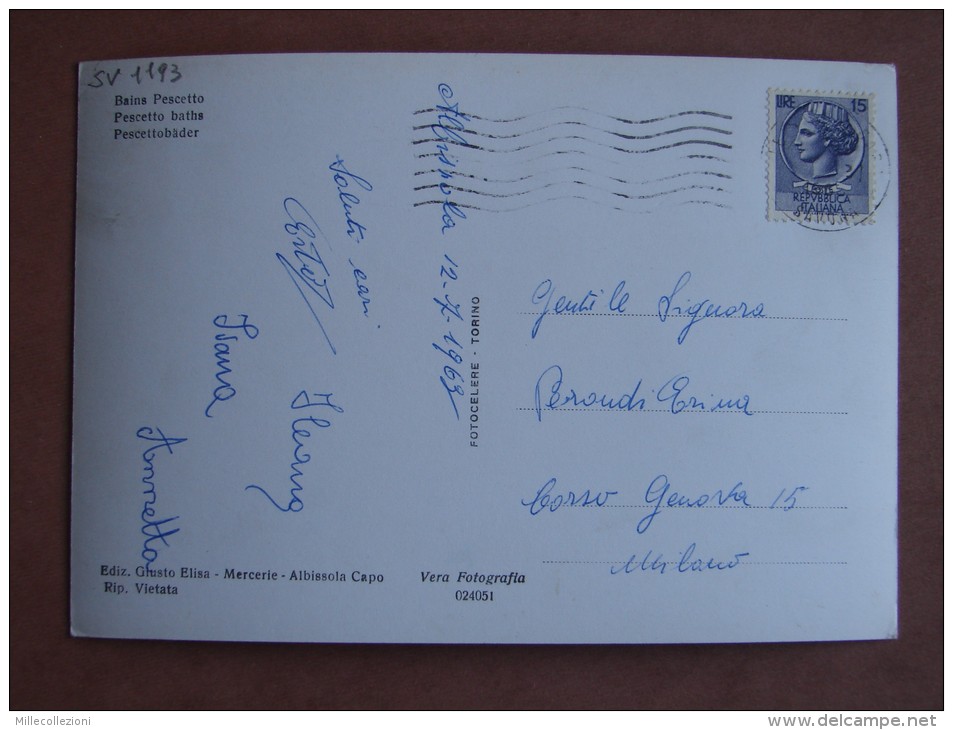 SV 1193
Bains Pescetto
Pescetto baths
Pescettobäder
Albissola 12-7-1963
Saluti cari
Ileana
Ivana
Annetta
LIRE 15
POSTE
REPVBBLICA
ITALIANA
FOTOCELERE - TORINO
Gentile Signora
Berondi Erina
Corso Genova 15
Milano
Ediz. Giusto Elisa - Mercerie - Albissola Capo
Rip. Vietata
Vera Fotografia
024051
Millecollezioni
http://www.delcampe.net